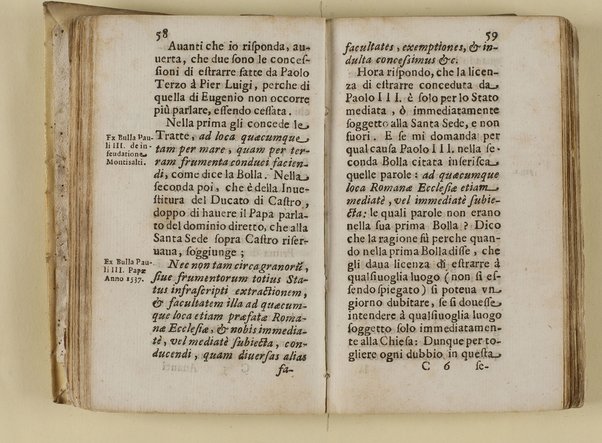 58
Auanti che io risponda, au-
uerta, che due sono le conces-
sioni di estrarre fatte da Paolo
Terzo à Pier Luigi, perche di
quella di Eugenio non occorre
più parlare, essendo cessata.
Nella prima gli concede le
Tratte, ad loca quæcumque
tam per mare, quam per ter-
ram frumenta conduci facien-
di, come dice la Bolla. Nella
seconda poi, che è della Inue-
stitura del Ducato di Castro,
doppo di hauere il Papa parla-
to del dominio diretto, che alla
Santa Sede sopra Castro riser-
uaua, soggiunge;
Nec non tam circa granorũ,
siue frumentorum totius Sta-
tus infrascripti extractionem,
& facultatem illa ad quæcum-
que loca etiam præfatæ Roma-
næ Ecclesiæ, & nobis immedia-
tè, vel mediatè subiecta, con-
ducendi, quam diuersas alias
fa-
Ex Bulla Pau-
li III. de in-
feudatione
Montisalti.
Ex Bulla Pau-
li III. Papæ
Anno 1537.
59
facultates, exemptiones, & in-
dulta concessimus &c.
Hora rispondo, che la licen-
za di estrarre conceduta da
Paolo III. è solo per lo Stato
mediata, ò immediatamente
soggetto alla Santa Sede, e non
fuori. E se mi domanda per
qual causa Paolo III. nella se-
conda Bolla citata inserisca
quelle parole: ad quæcumque
loca Romanæ Ecclesiæ etiam
mediatè, vel immediatè subie-
cta: le quali parole non erano
nella sua prima Bolla? Dico
che la ragione sù perche quan-
do nella prima Bolla disse, che
gli daua licenza di estrarre à
qualsiuoglia luogo (non si es-
sendo spiegato) si poteua vn
giorno dubitare, se si douesse
intendere à qualsiuoglia luogo
soggetto solo immediatamen-
te alla Chiesa: Dunque per to-
gliere ogni dubbio in questa
C 6 se-